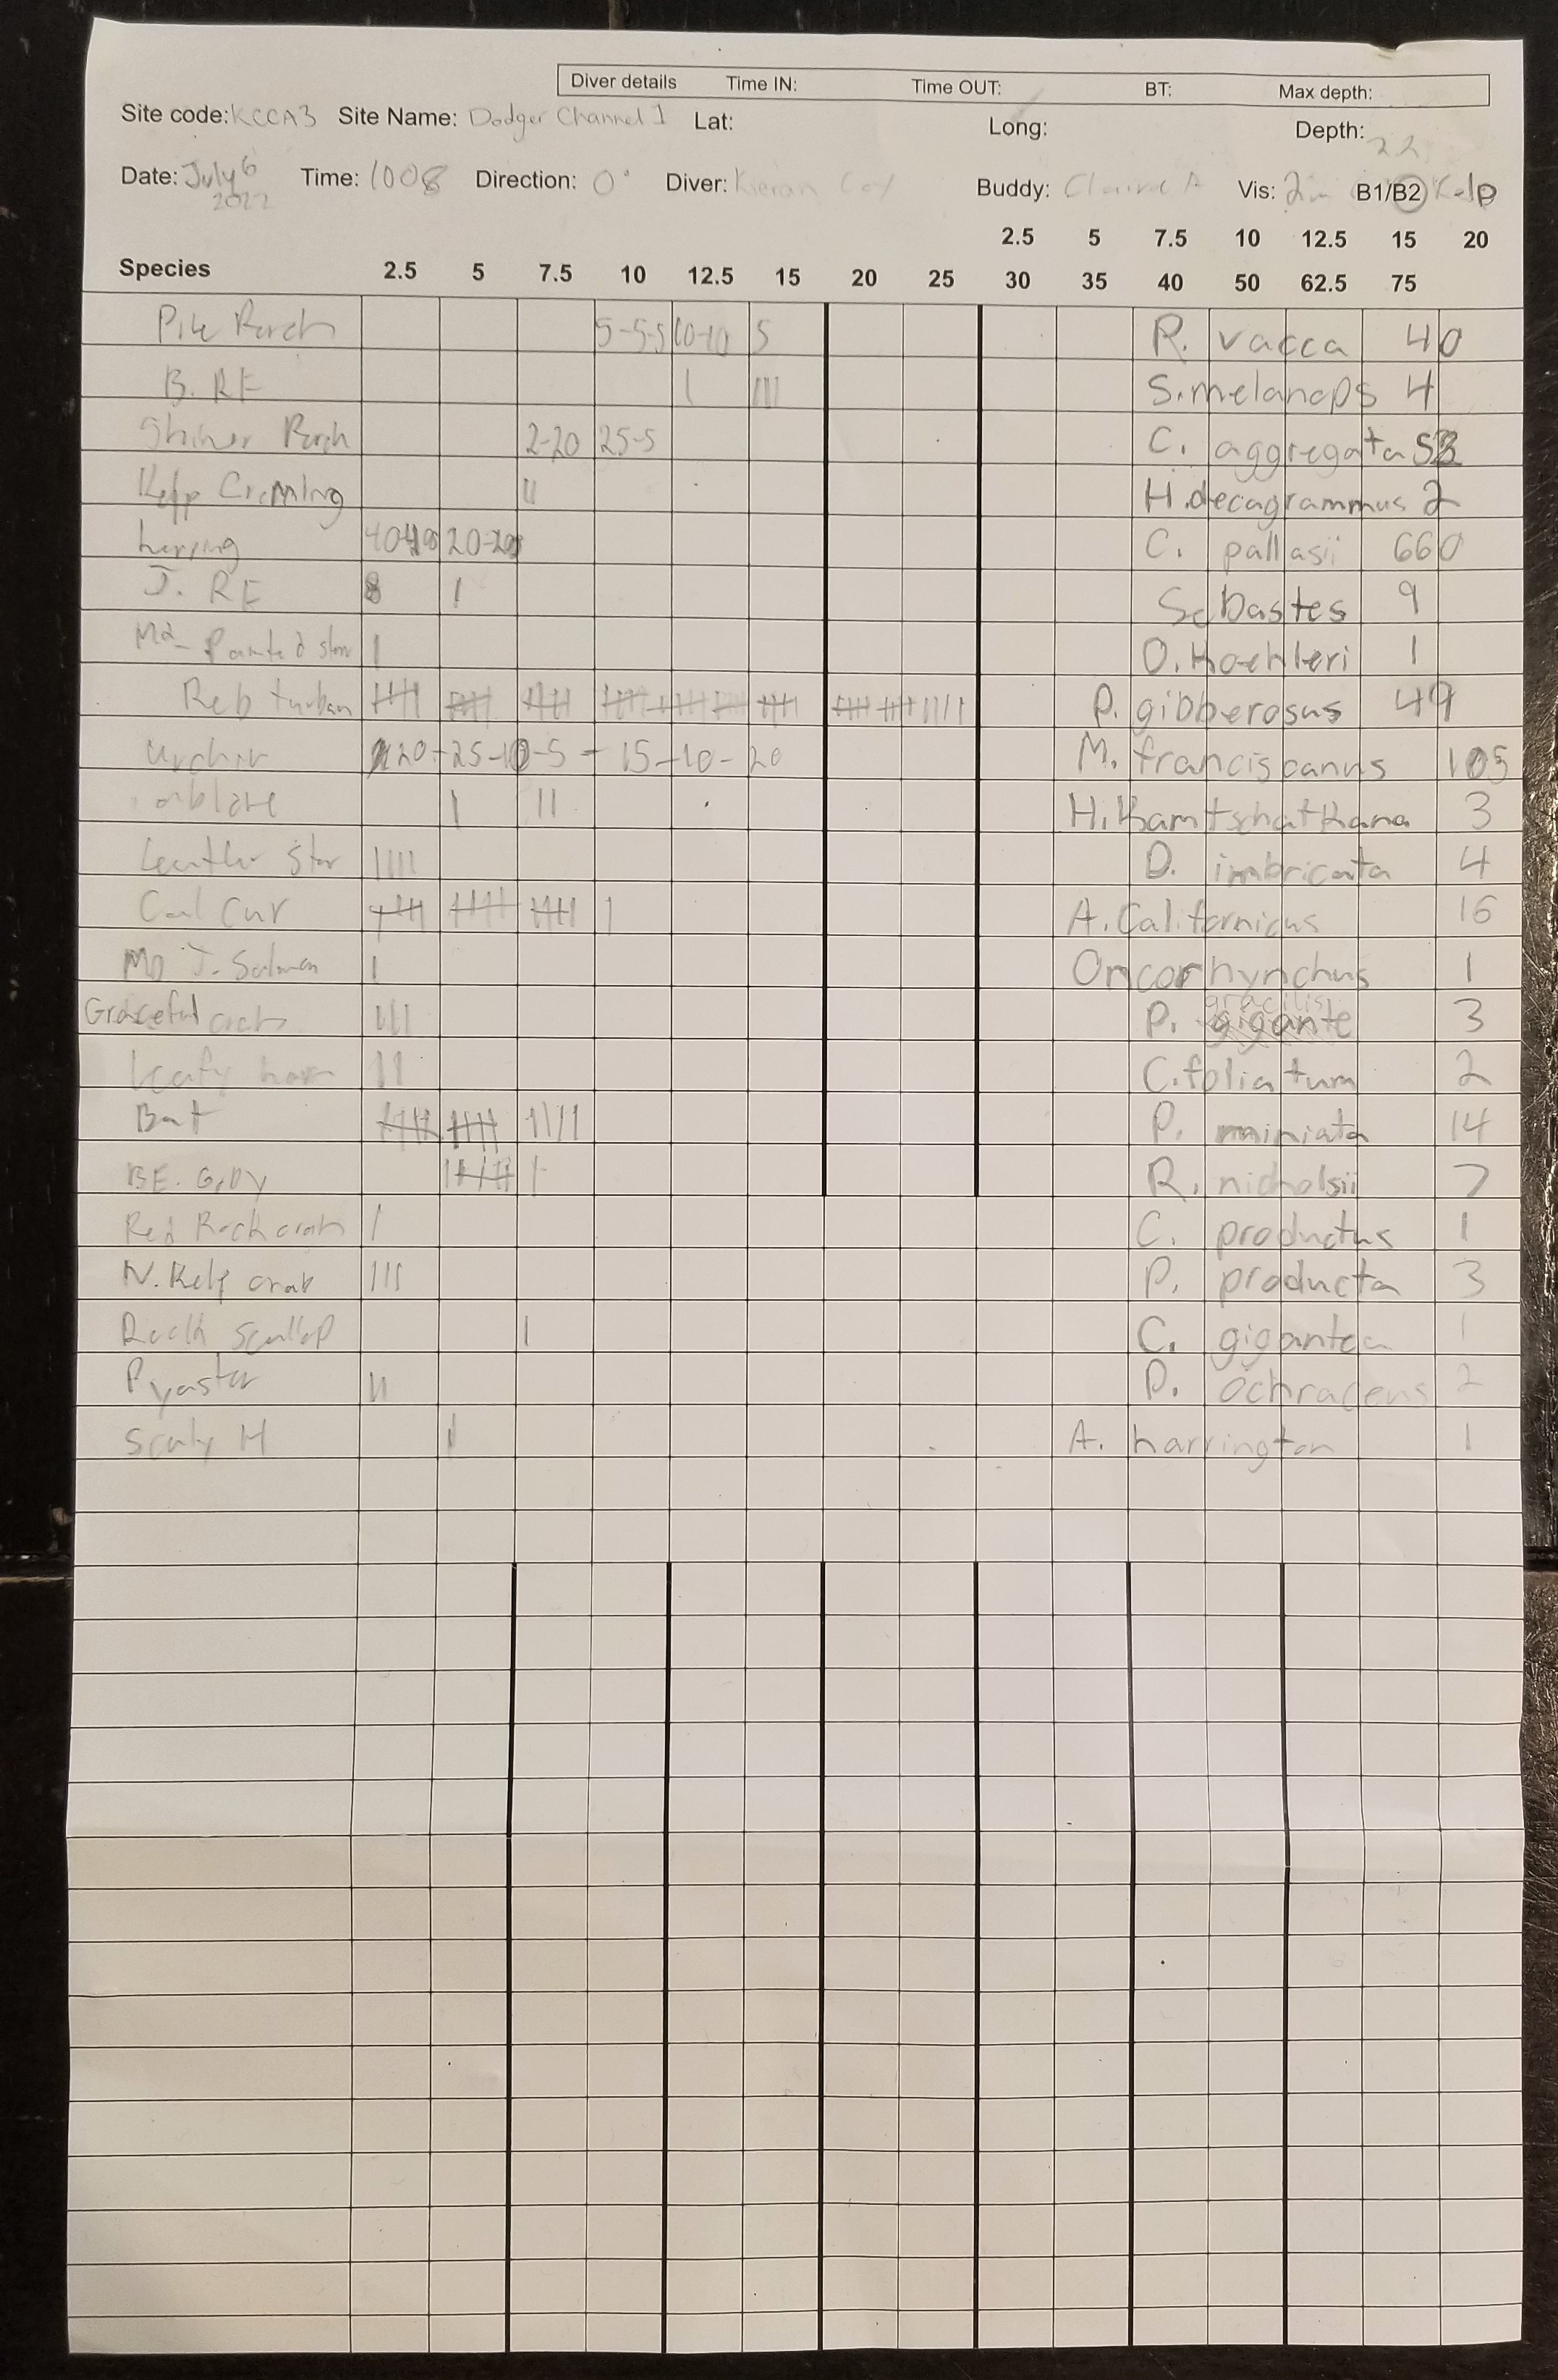 Diver details Time IN: Time OUT: BT: Max depth:
Site code: KCCA3 Site Name: Dodger Channel 1 Lat: Long: Depth: 22
Date: July 6 2022 Time: 1008 Direction: 0° Diver: Kieran Cox Buddy: Claire A Vis: 2m B1/B2 Kelp
2.5 5 7.5 10 12.5 15 20
Species 2.5 5 7.5 10 12.5 15 20 25 30 35 40 50 62.5 75
Pile Perch 5-5-5 10-10 5 R. vacca 40
B. RF | ||| S. melanops 4
Shiner Perch 2-20 25-5 C. aggregata
Kelp Greenling || H. decagrammus 2
herring 20- C. pallasii 660
J. RF 8 | Sebastes 9
Painted star | O. Koehleri 1
Reb turban P. gibberosus 49
Urchin 20-25-10-5-15-10-20 M. franciscanus 105
abalone | || H. Kamtschatkana 3
Leather Star |||| D. imbricata 4
Cal Cuc | A. Californicus 16
J. Salmon | Oncorhynchus 1
Graceful crab ||| P. gracilis gigante 3
Leafy horn || C. foliatum 2
Bat |||| P. miniata 14
BE. Goby | R. nicholsii 7
Red Rock crab | C. productus 1
N. Kelp crab ||| P. producta 3
Rock Scallop | C. gigantea 1
Pyaster || P. ochraceus 2
Scaly H | A. harrington 1